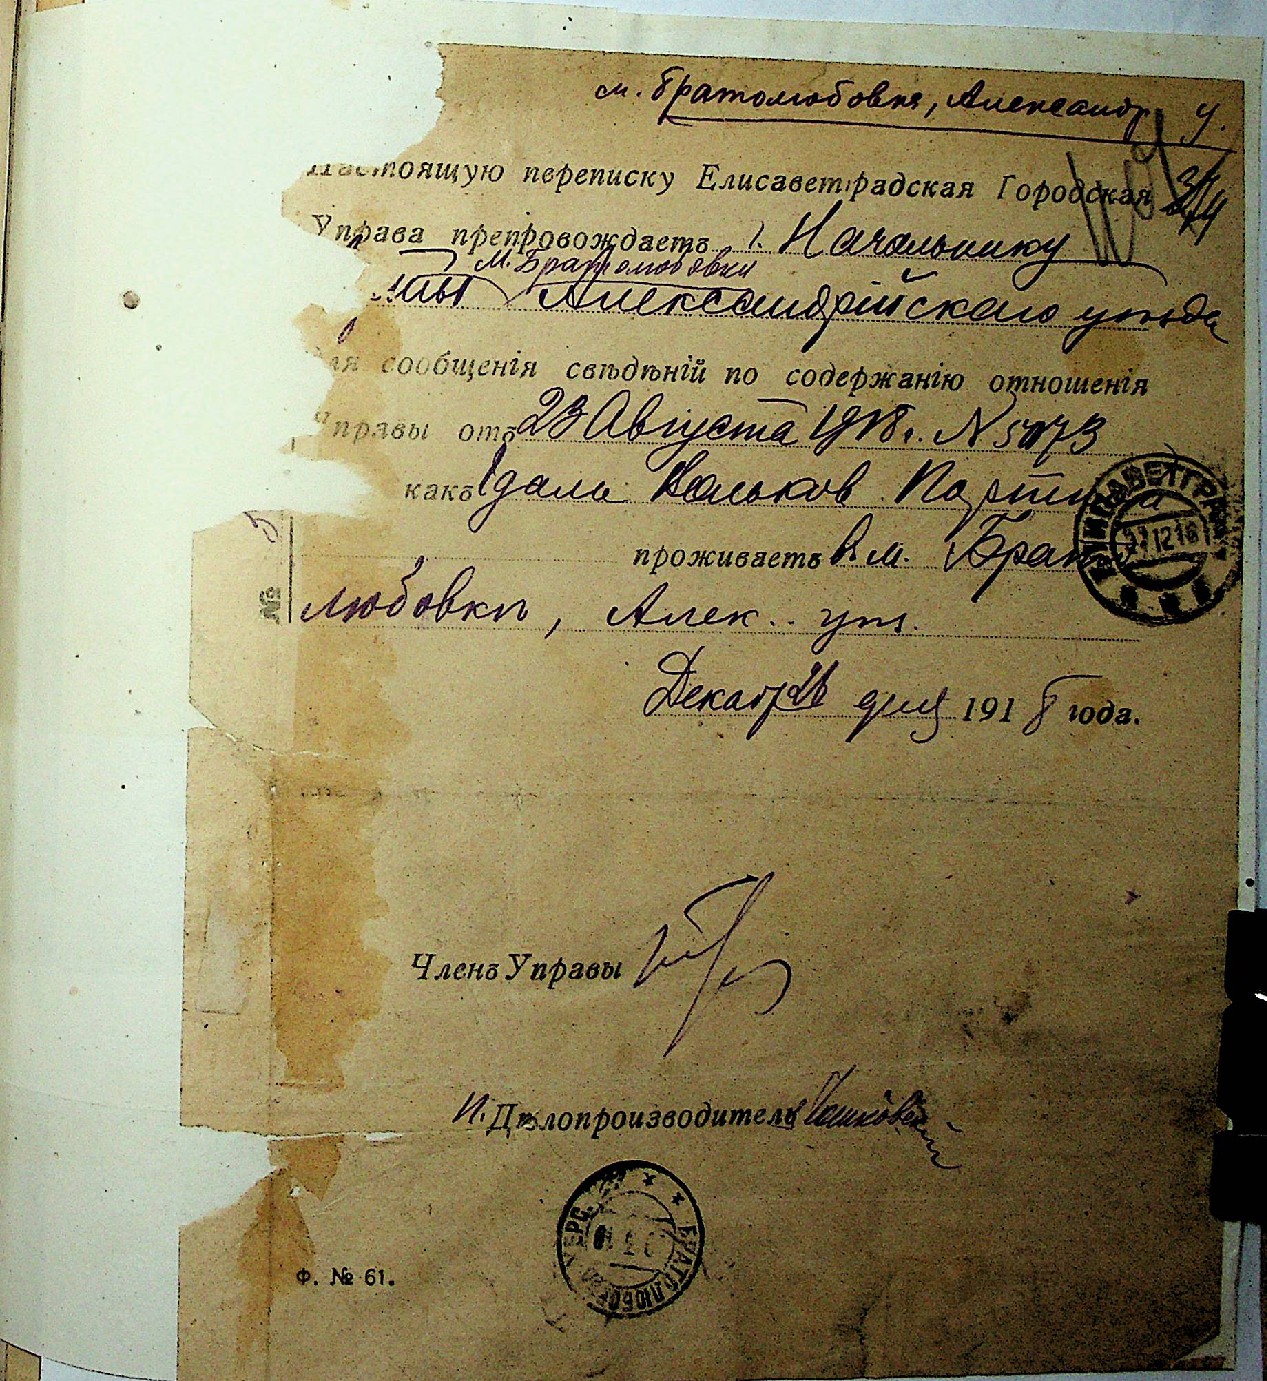 м. Братолюбовка, Александр. у.
Настоящую переписку Елисаветградская Городская
Управа препровождаетъ г. Начальнику
м. Братолюбовки
Александрійскаго уѣзда
для сообщенія свѣдѣній по содержанію отношенія
Управы отъ 23 Августа 1918 г. N 5073
какъ Вольков
проживаетъ в м. Брато
любовкѣ, Алек. уѣз.
№
Декабр 26 дня 1918 года.
Членъ Управы
И. Дѣлопроизводитель
Ф. № 61.
ЕЛИСАВЕТГРАД
27 12 18
БРАТОЛЮБОВКА ХЕРС.